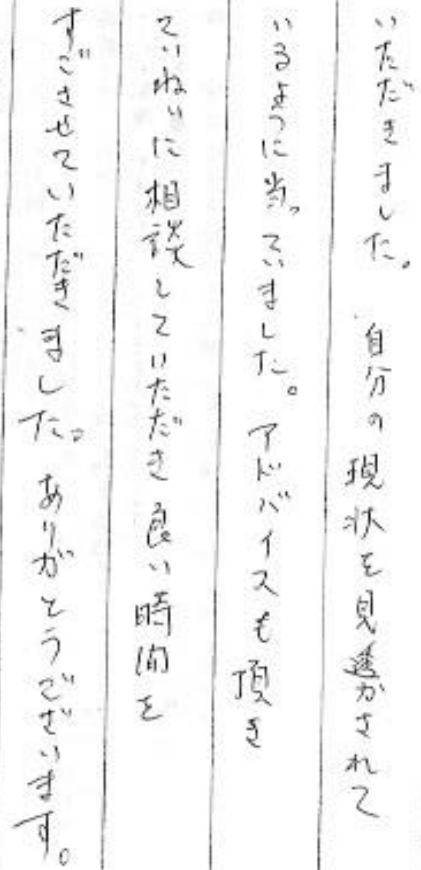 いただきました。 自分の現状を見透かされて
いるように当っていました。アドバイスも頂き
ていねいに相談していただき良い時間を
すごさせていただきました。ありがとうございます。